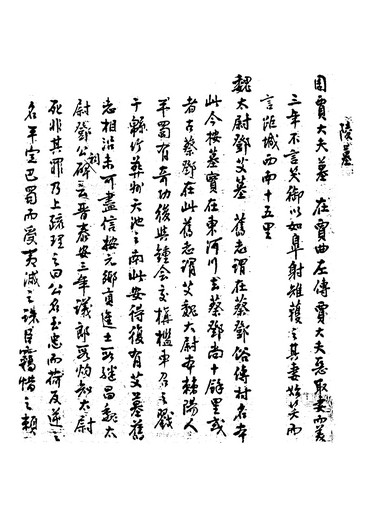 陵墓
周賈大夫墓 在賈曲左傳賈大夫惡取妻而美
三年不言笑御以如皐射雉獲之其妻始笑而
言距城西南十五里
魏太尉鄧艾墓 舊志謂在蔡鄧俗傳村名本
此今按墓實在東河川去蔡鄧尚十餘里或
者古蔡鄧在此舊志謂艾魏太尉本棘陽人
平蜀有奇功後與鍾會交構檻車召之戮
于緜竹葬於天池之南此安得復有艾墓舊
志相沿未可盡信按元鄉貢進士
尉鄧公祠碑云晉泰安三年議郎段灼知太尉
死非其罪乃上疏理之曰艾名至忠而荷反逆之
名平定巴蜀而受夷滅之誅臣竊惜之賴